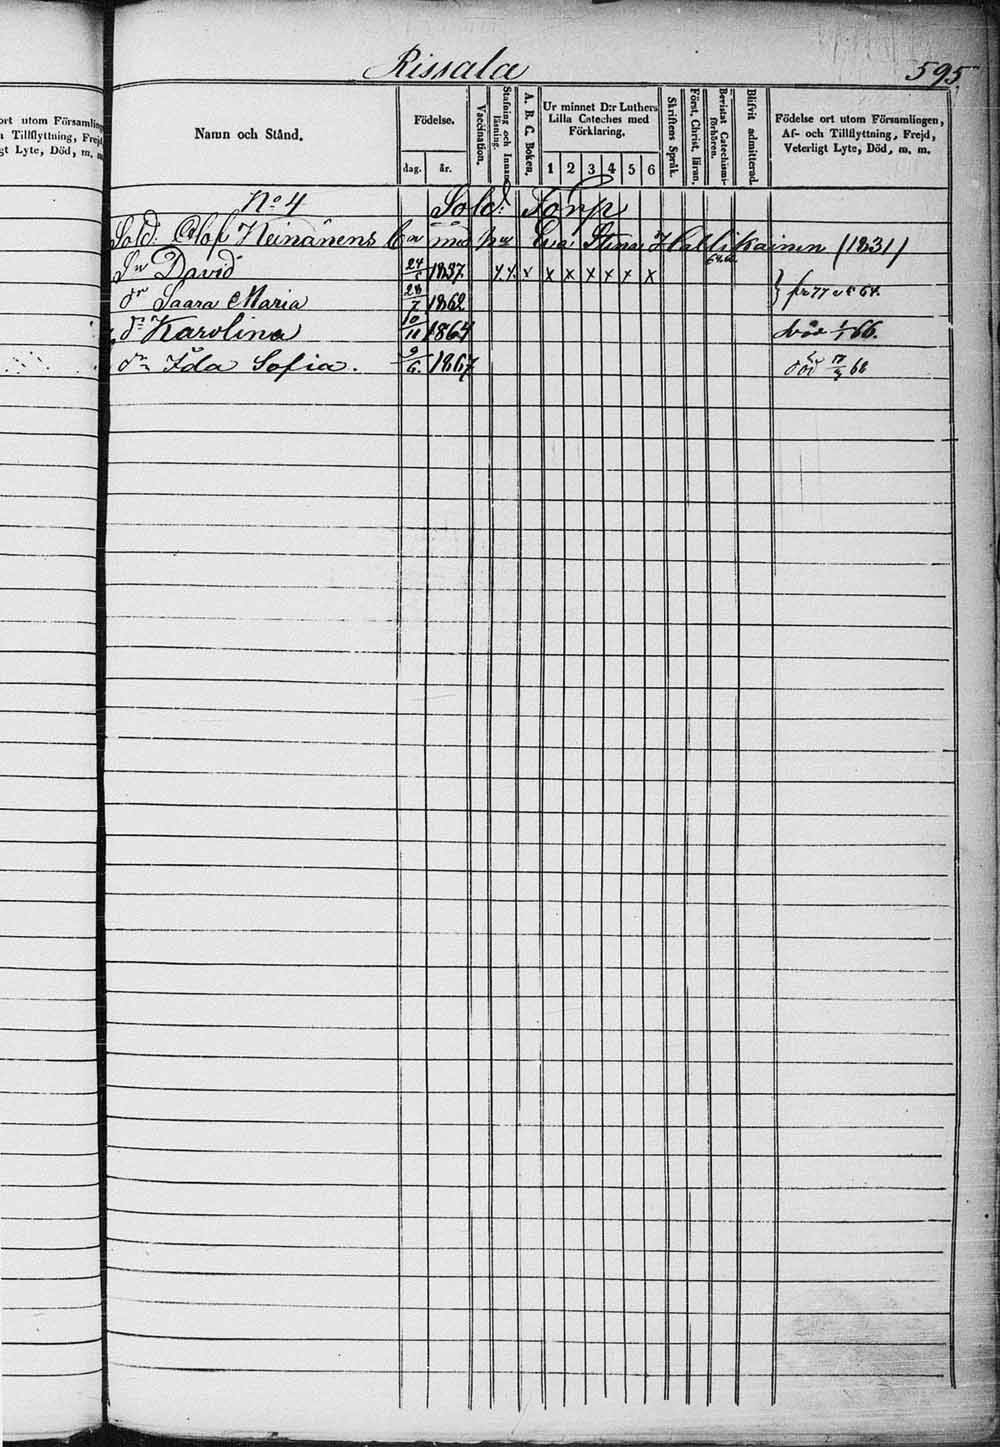 Rissala
595.
ort utom Församlingen
Tillflyttning, Frejd
gt Lyte, Död, m. m.
Namn och Stånd.
Födelse.
dag.
år.
Vaccination.
Stafning och Innanläsning.
A. B. C. Boken.
Ur minnet D:r Luthers
Lilla Cateches med
Förklaring.
1 2 3 4 5 6
Skriftens Språk.
Först. Christ. läran.
Bevistat Catechismiförhören.
Blifvit admitterad.
Födelse ort utom Församlingen,
Af- och Tillflyttning, Frejd,
Veterligt Lyte, Död, m. m.
No 4 Sold: Torp
Sold: Olof Heinänens Barn med h:u Eva Stina Hallikainen (1831)
Sn David 24 1837 x x x x x x x x x
dr Saara Maria 28/7 1862 } fr 77 v
dr Karolina 10/11 1864 död 1/1 66.
dr Ida Sofia. 9/6. 1867 död 17 68